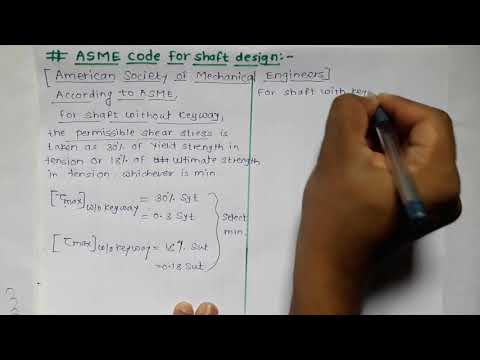 # ASME code for shaft design:-
[American Society of Mechanical Engineers]
According to ASME,
for shaft without keyway,
the permissible shear stress is
taken as 30% of yield strength in
tension or 18% of ultimate strength
in tension, whichever is min.
[τmax]w/o keyway = 30% Syt
= 0.3 Syt
[τmax]w/o keyway = 18% Sut
=0.18 Sut
Select
min.
For shaft with key